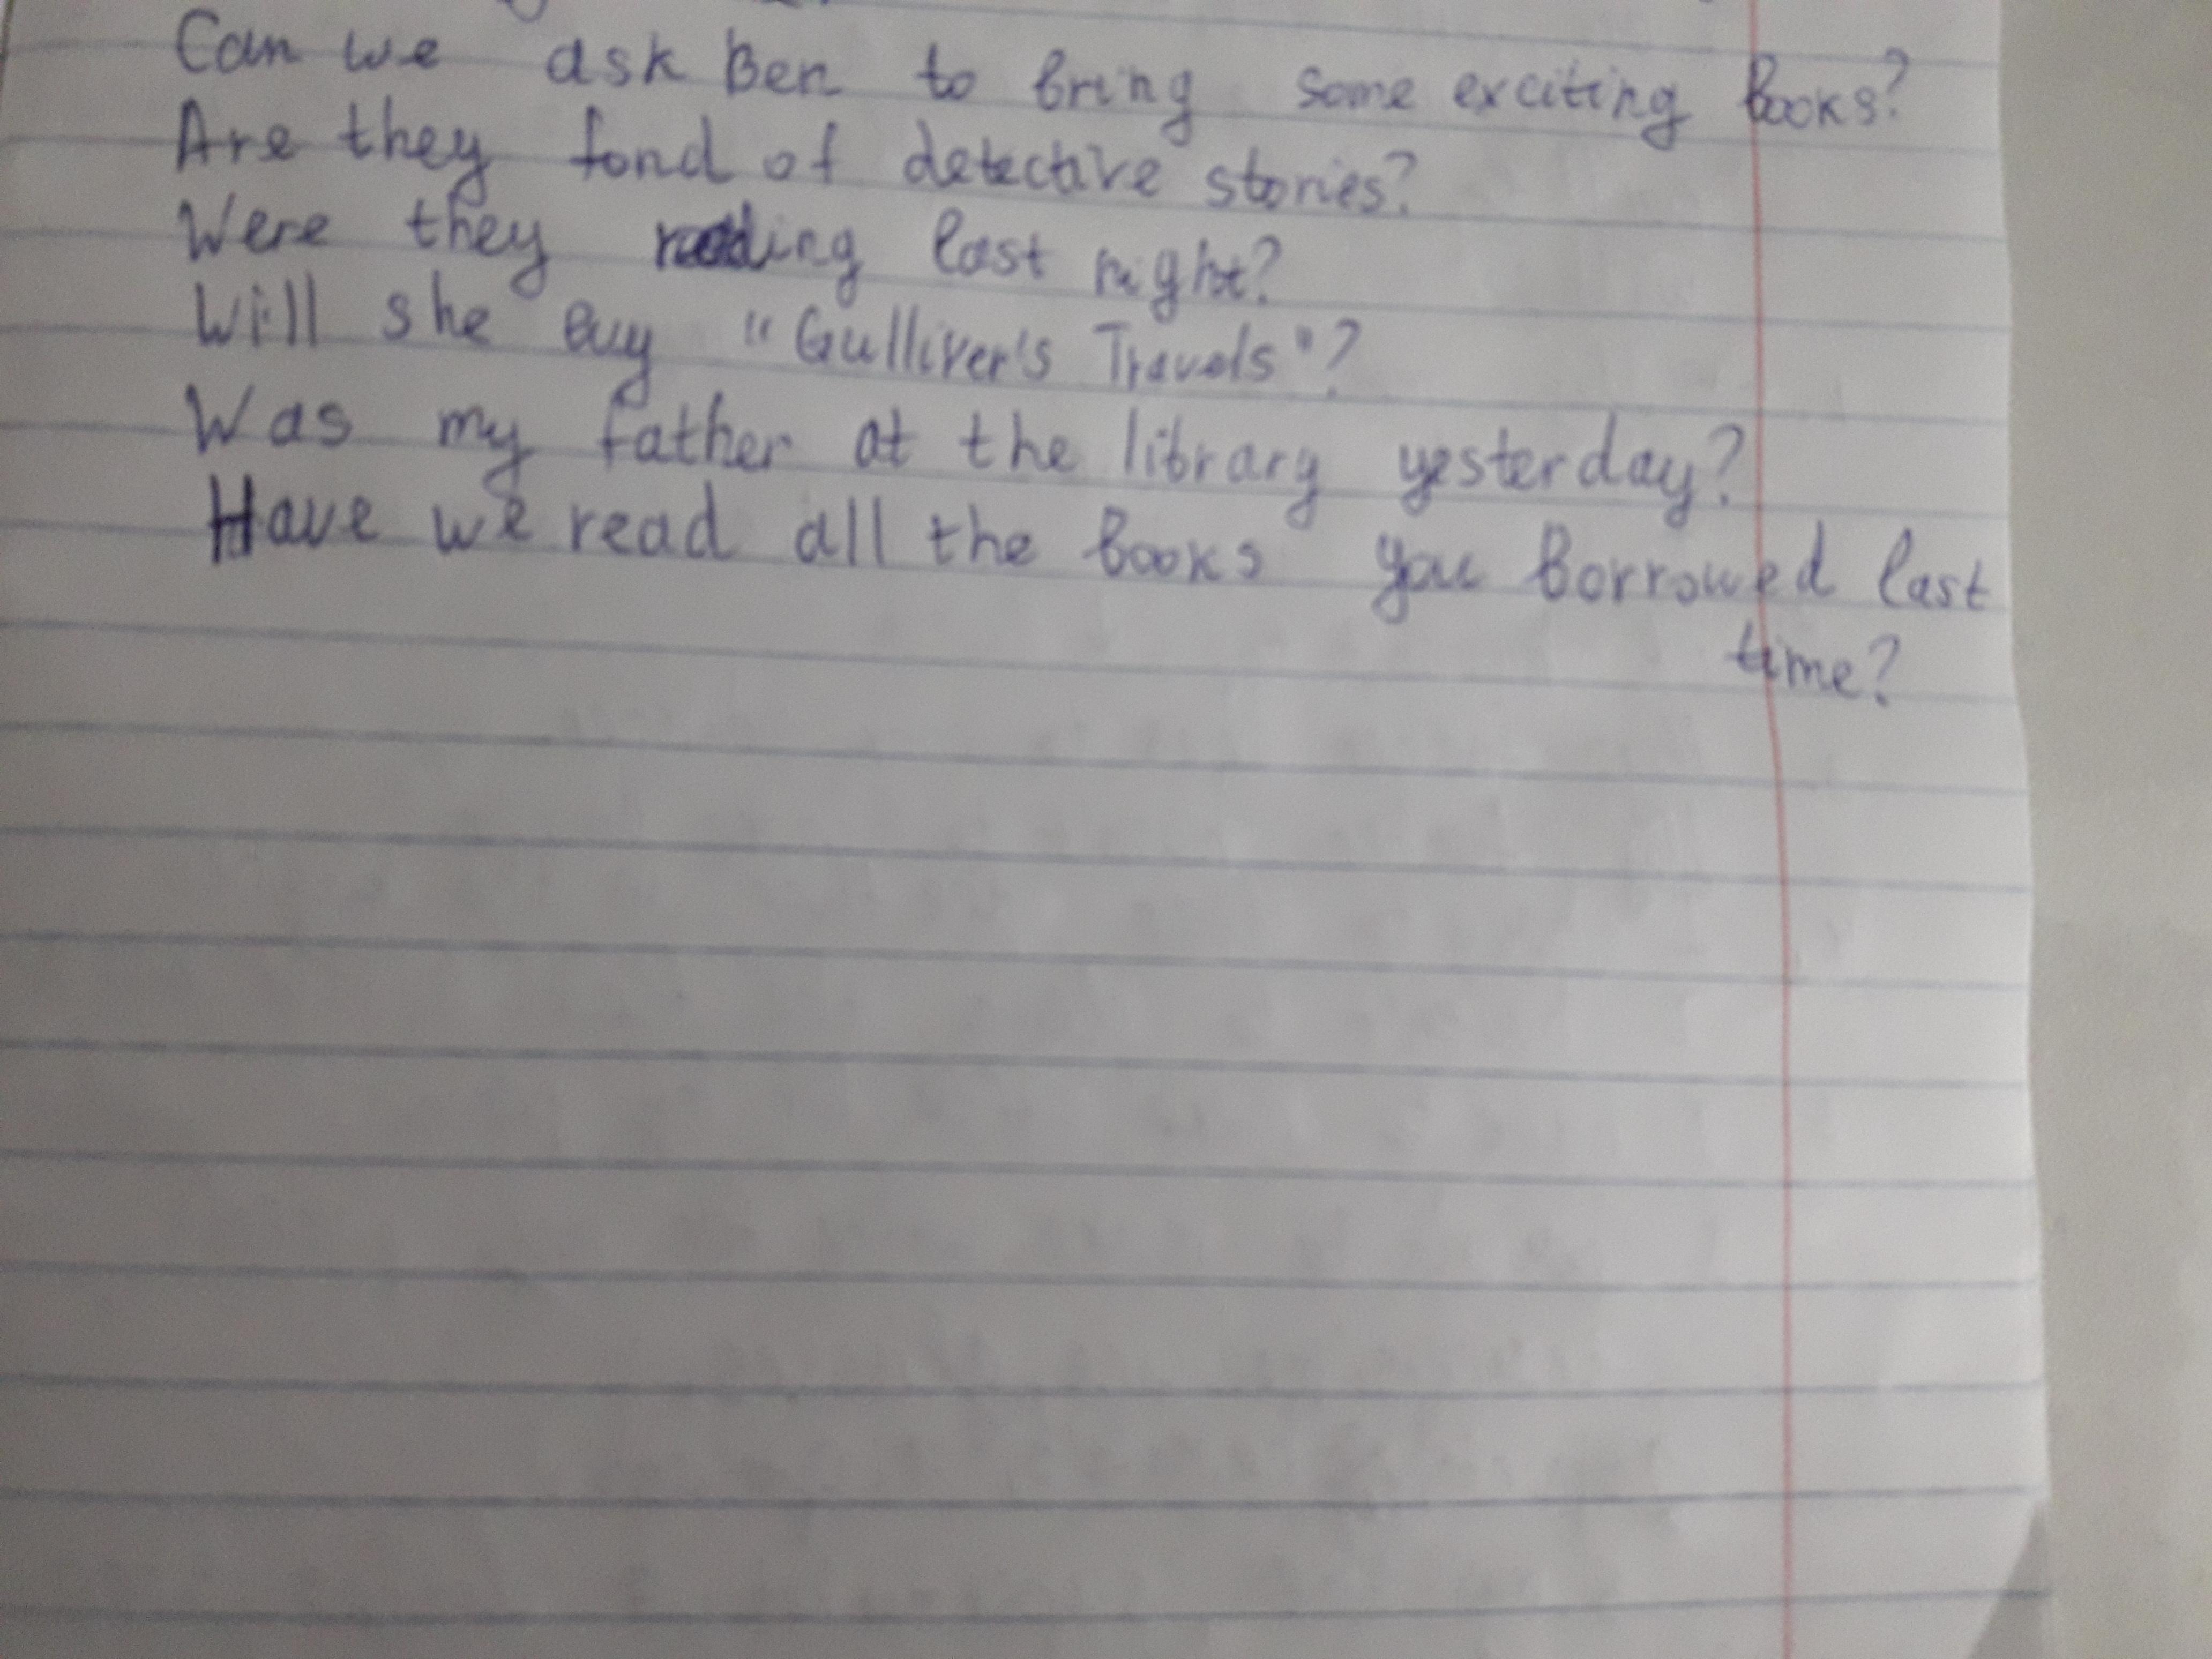 Can we ask Ben to bring some exciting books?
Are they fond of detective stories?
Were they reading last night?
Will she buy "Gulliver's Travels"?
Was my father at the library yesterday?
Have we read all the books you borrowed last
time?